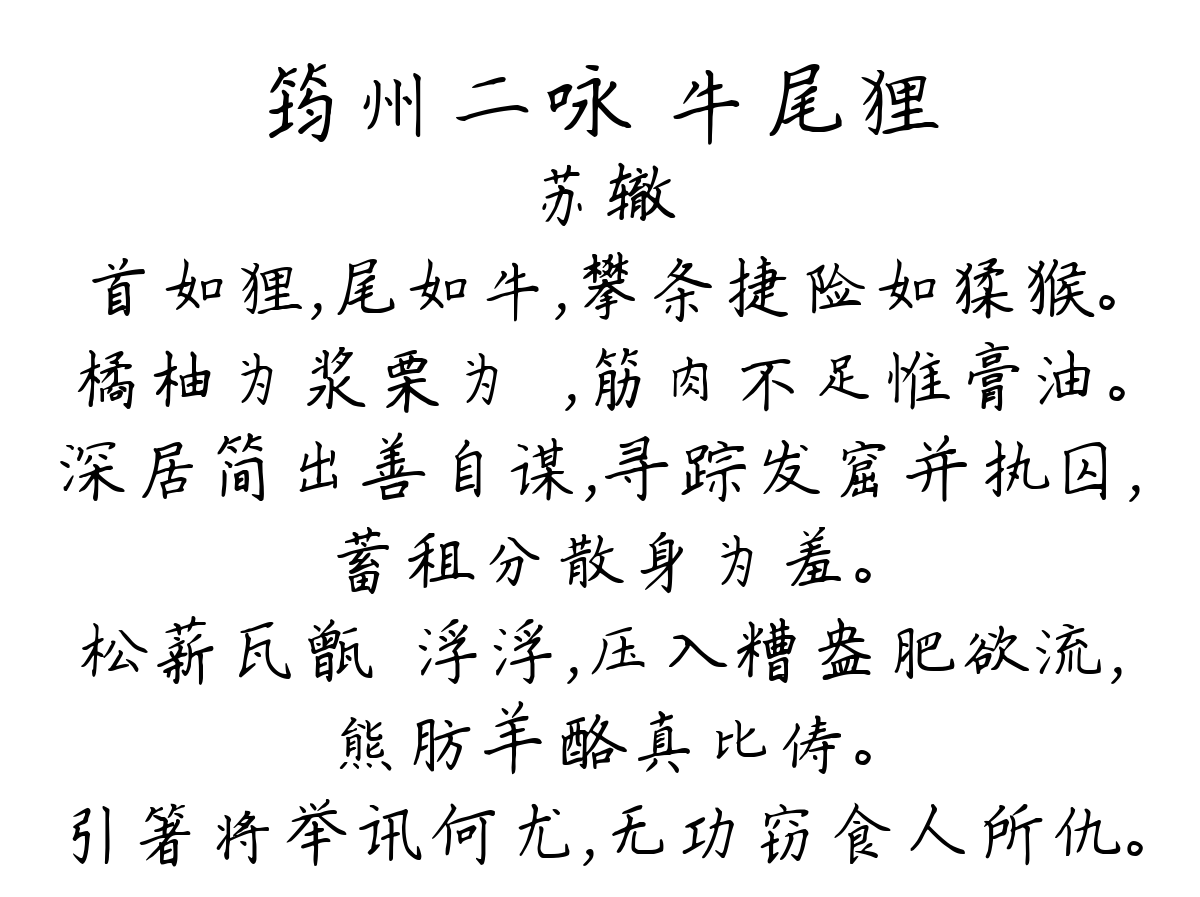 筠州二咏 牛尾狸
苏辙
首如狸,尾如牛,攀条捷险如猱猴。
橘柚为浆栗为 ,筋肉不足惟膏油。
深居简出善自谋,寻踪发窟并执囚,
蓄租分散身为羞。
松薪瓦甑 浮浮,压入糟盎肥欲流,
熊肪羊酪真比俦。
引箸将举讯何尤,无功窃食人所仇。